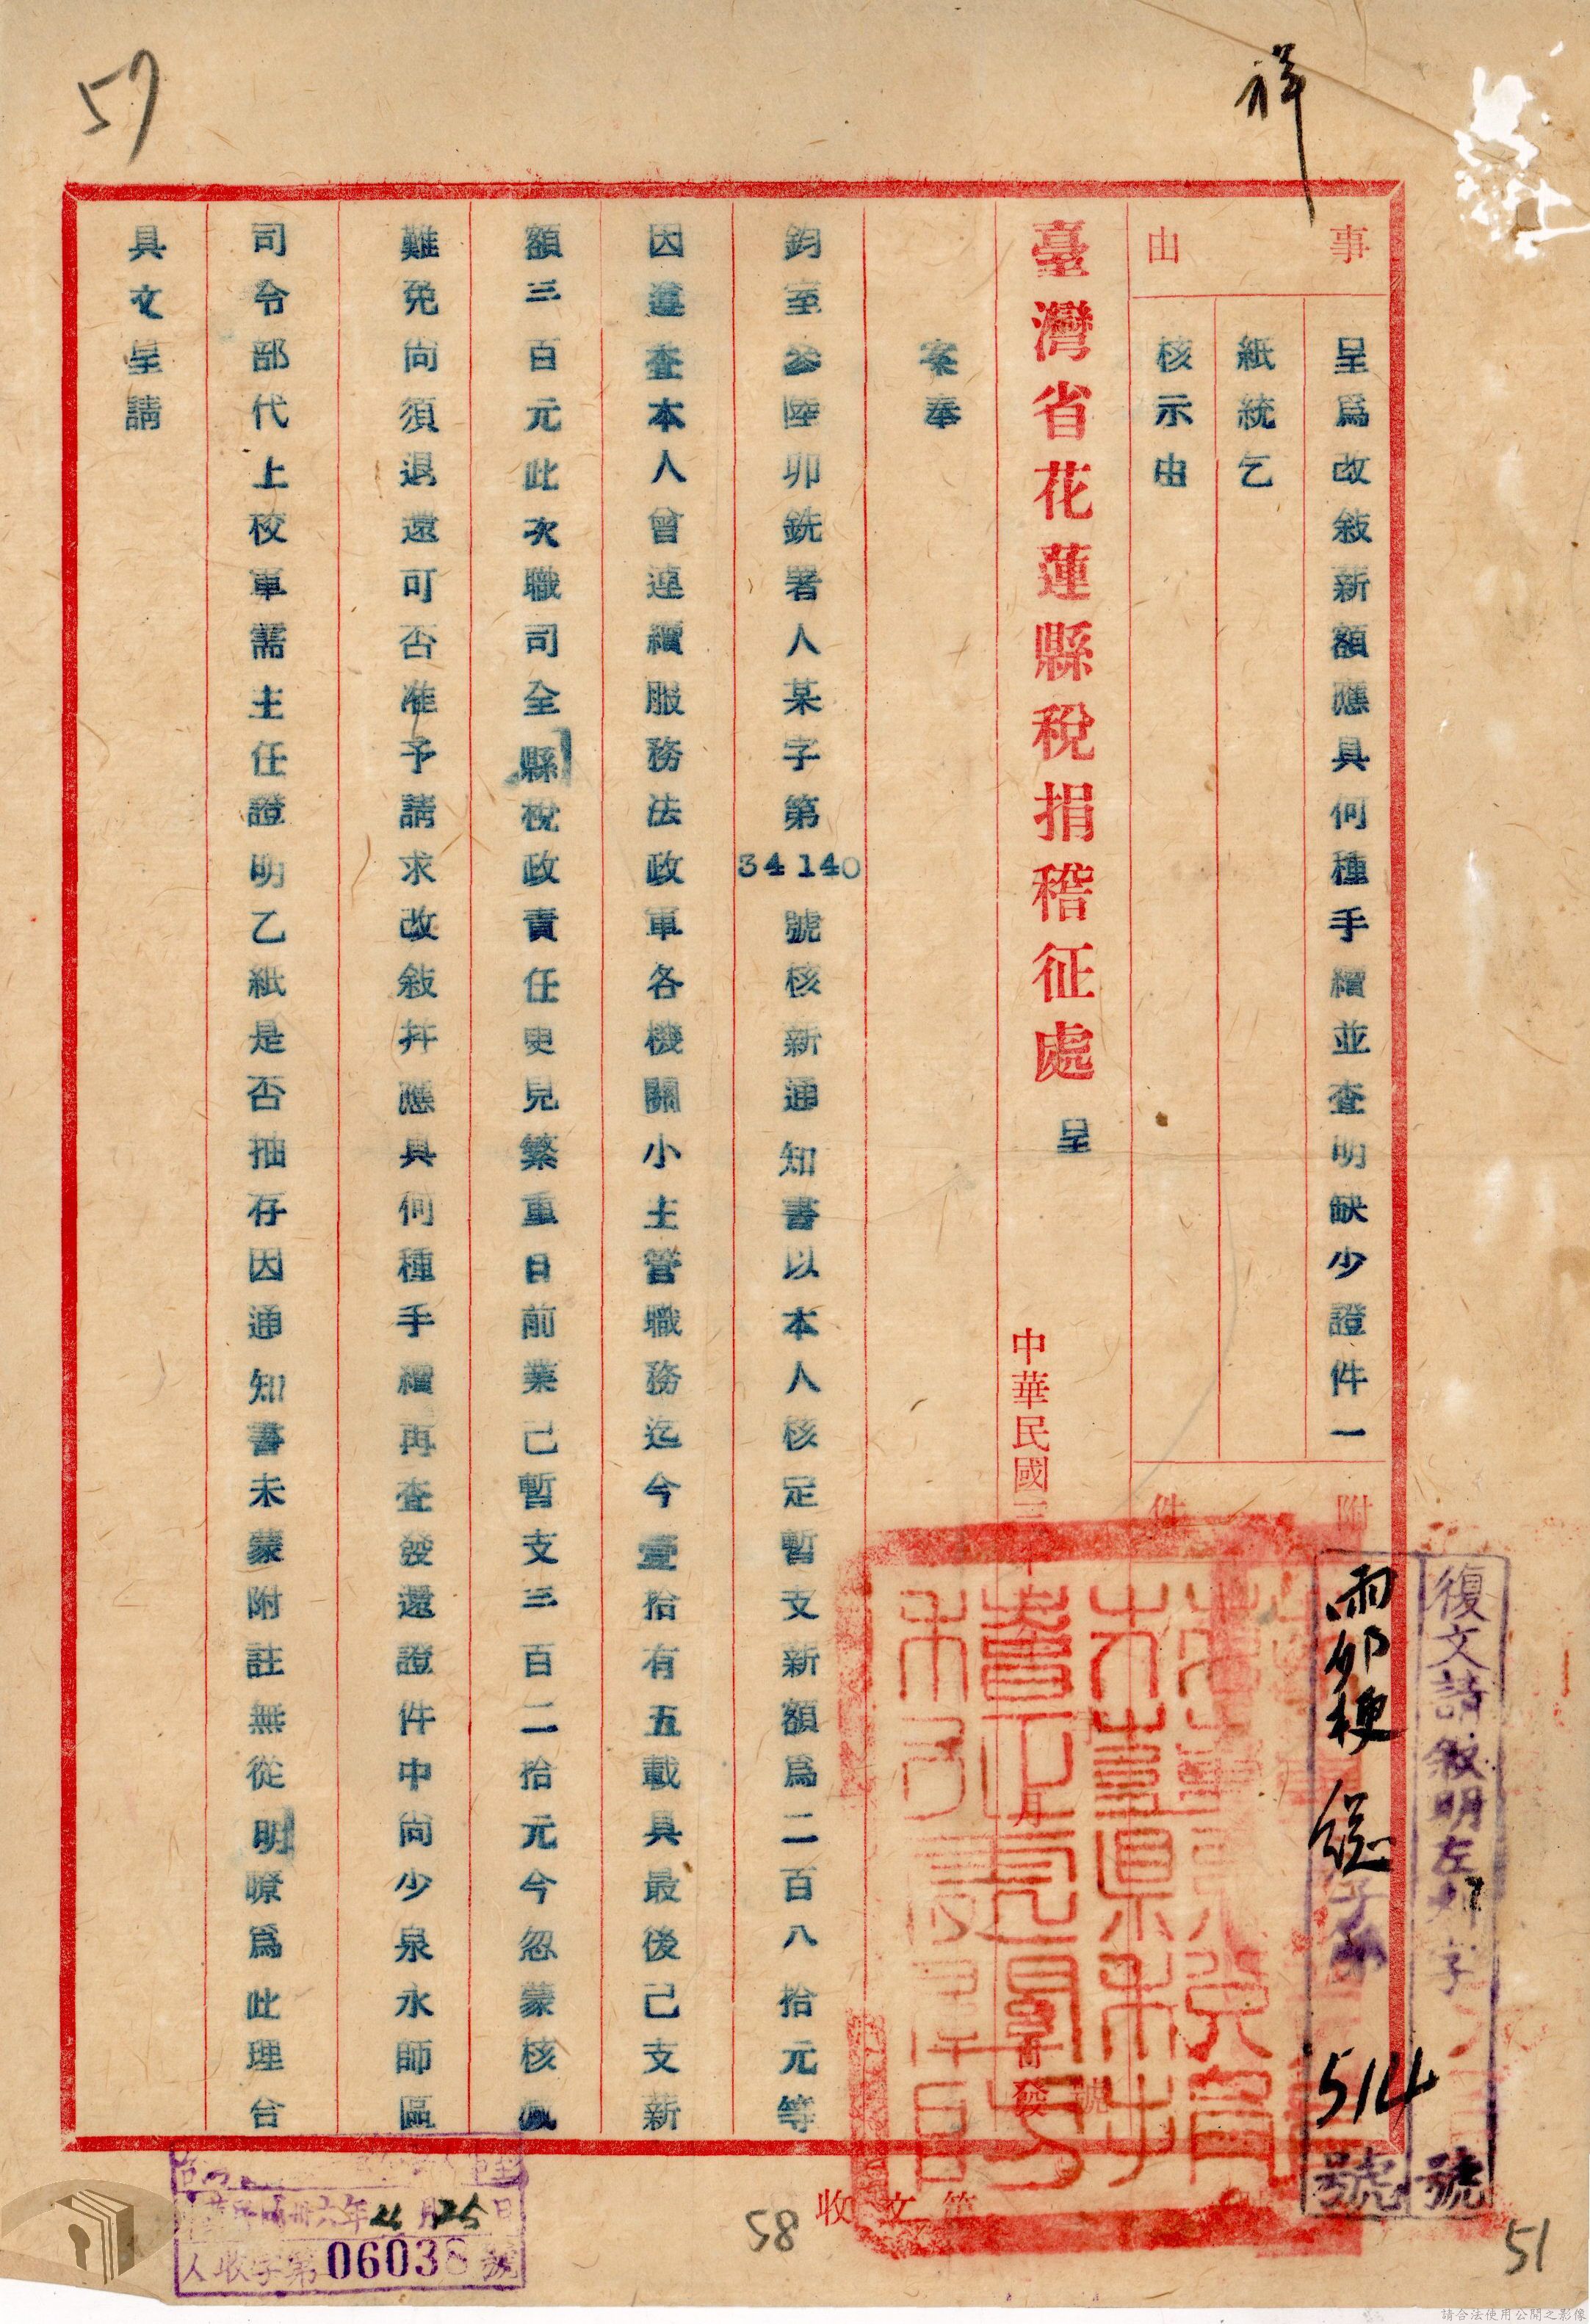 祥
57
事
由
呈為改敍薪額應具何種手續並查明缺少證件一
紙統乞
核示由
附
件
臺灣省花蓮縣稅捐稽征處 呈
中華民國三
月
發
號
案奉
鈞室參陸卯銑署人某字第34140號核薪通知書以本人核定暫支薪額為二百八拾元等
因遵查本人曾連續服務法政軍各機關小主管職務迄今壹拾有五載具最後己支薪
額三百元此次職司全縣稅政責任更見繁重日前業己暫支三百二拾元今忽蒙核減
難免向須退還可否准予請求改敍并應具何種手續再查發還證件中尚少泉永師區
司令部代上校軍需主任證明乙紙是否抽存因通知書未蒙附註無從明瞭為此理合
具文呈請
復文請敍明左列字號
雨卯梗 514號
收文第
卅六年4月25日
人收字第06038號
58
51
請合法使用公開之影像